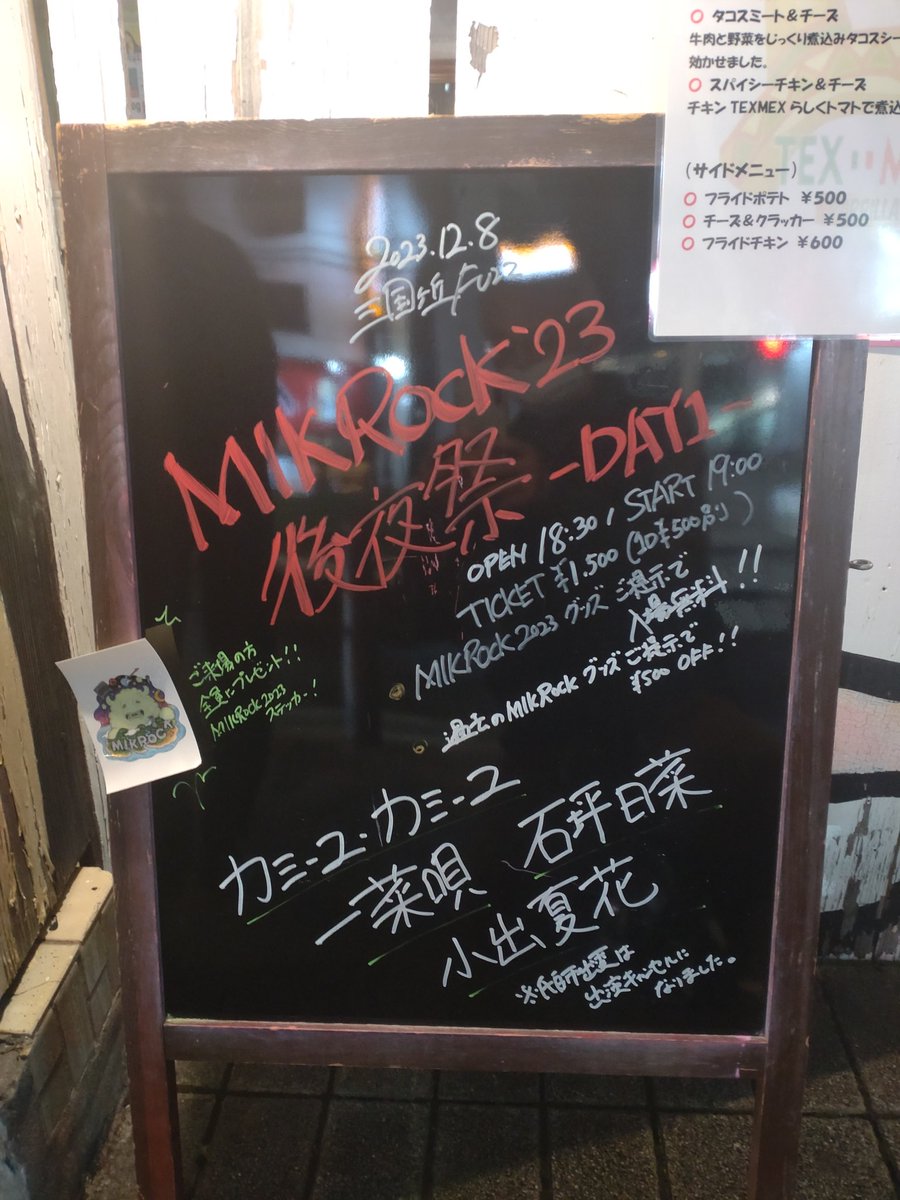 ○ タコスミート＆チーズ
牛肉と野菜をじっくり煮込みタコスシー
効かせました。
○ スパイシーチキン＆チーズ
チキンTEXMEXらしくトマトで煮込
TEX
（サイドメニュー）
○ フライドポテト ￥500
○ チーズ＆クラッカー ￥500
○ フライドチキン ￥600
2023.12.8
三国ヶ丘FUZZ
MIKROCK'23
後夜祭 -DAY1-
OPEN 18:30 / START 19:00
TICKET ¥1.500 (1D¥500別)
MIKROCK2023 グッズご提示で
入場無料!!
過去のMIKROCKグッズご提示で
¥500 OFF!!
ご来場の方
全員にプレゼント!!
MIKROCK2023
ステッカー!
MIKROCK
カミーユ・カミーユ
一菜唄 石坪日菜
小出夏花
出演キャンセルに
なりました。